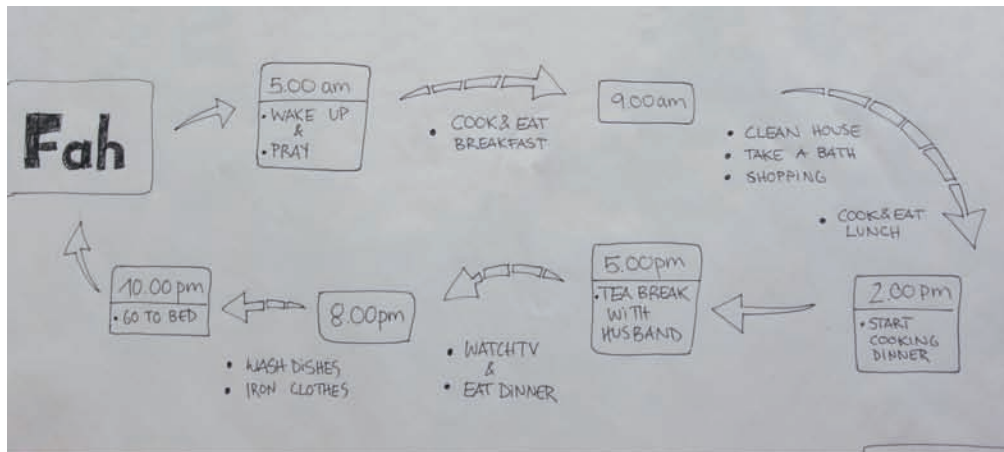 Fah
5.00 am
• WAKE UP
&
• PRAY
• COOK & EAT
BREAKFAST
9.00am
• CLEAN HOUSE
• TAKE A BATH
• SHOPPING
• COOK & EAT
LUNCH
2.00 pm
• START
COOKING
DINNER
5.00pm
• TEA BREAK
WITH
HUSBAND
• WATCH TV
&
• EAT DINNER
8.00pm
• WASH DISHES
• IRON CLOTHES
10.00 pm
• GO TO BED